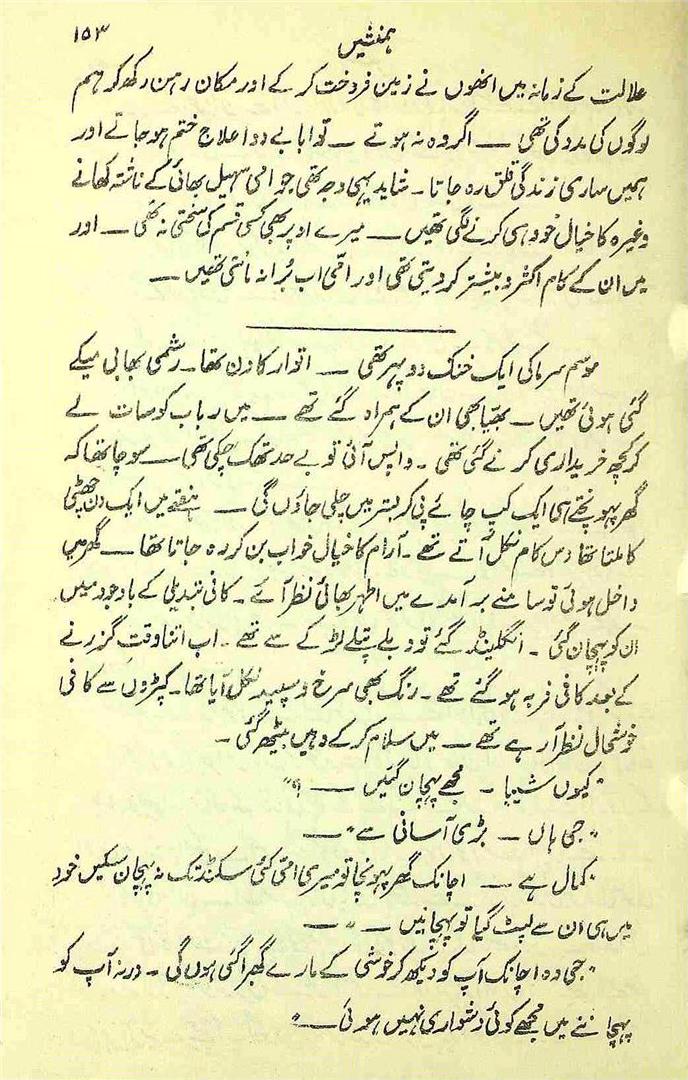 ہمنشیں ۱۵۳
علالت کے زمانہ میں انھوں نے زمین فروخت کر کے اور مکان رہن رکھ کر ہم
لوگوں کی مدد کی تھی — اگر وہ نہ ہوتے — تو ابا بے دوا علاج ختم ہو جاتے اور
ہمیں ساری زندگی قلق رہ جاتا۔ شاید یہی وجہ تھی جو امی سہیل بھائی کے ناشتہ کھانے
وغیرہ کا خیال خود ہی کرنے لگی تھیں — میرے اوپر بھی کسی قسم کی سختی نہ تھی — اور
میں ان کے کام اکثر و بیشتر کر دیتی تھی اور امّی اب بُرا نہ مانتی تھیں —
موسم سرما کی ایک خنک دوپہر تھی — اتوار کا دن تھا۔ رشمی بھابی میکے
گئی ہوئی تھیں — بھیّا بھی ان کے ہمراہ گئے تھے — میں رباب کو سات لے
کر کچھ خریداری کرنے گئی تھی۔ واپس آئی تو بے حد تھک چکی تھی — سوچا تھا کہ
گھر پہونچتے ہی ایک کپ چائے پی کر بستر میں چلی جاؤں گی — ہفتے میں ایک دن چھٹی
کا ملتا تھا دس کام نکل آتے تھے۔ آرام کا خیال خواب بن کر رہ جاتا تھا — گھر میں
داخل ہوئی تو سامنے برآمدے میں اطہر بھائی نظر آئے۔ کافی تبدیلی کے باوجود میں
ان کو پہچان گئی۔ انگلینڈ گئے تو دبلے پتلے لڑکے سے تھے۔ اب اتنا وقت گزرنے
کے بعد کافی فربہ ہو گئے تھے۔ رنگ بھی سرخ و سپید نکل آیا تھا۔ کپڑوں سے کافی
خوشحال نظر آ رہے تھے — میں سلام کر کے وہیں بیٹھ گئی۔
"کیوں شیبا۔ مجھے پہچان گئیں — ؟"
"جی ہاں — بڑی آسانی سے" —
"کمال ہے — اچانک گھر پہونچا تو میری امّی کئی سکنڈ تک نہ پہچان سکیں خود
میں ہی ان سے لپٹ گیا تو پہچانیں — " —
"جی وہ اچانک آپ کو دیکھ کر خوشی کے مارے گھبرا گئی ہوں گی۔ ورنہ آپ کو
پہچاننے میں مجھے کوئی دشواری نہیں ہوئی —"